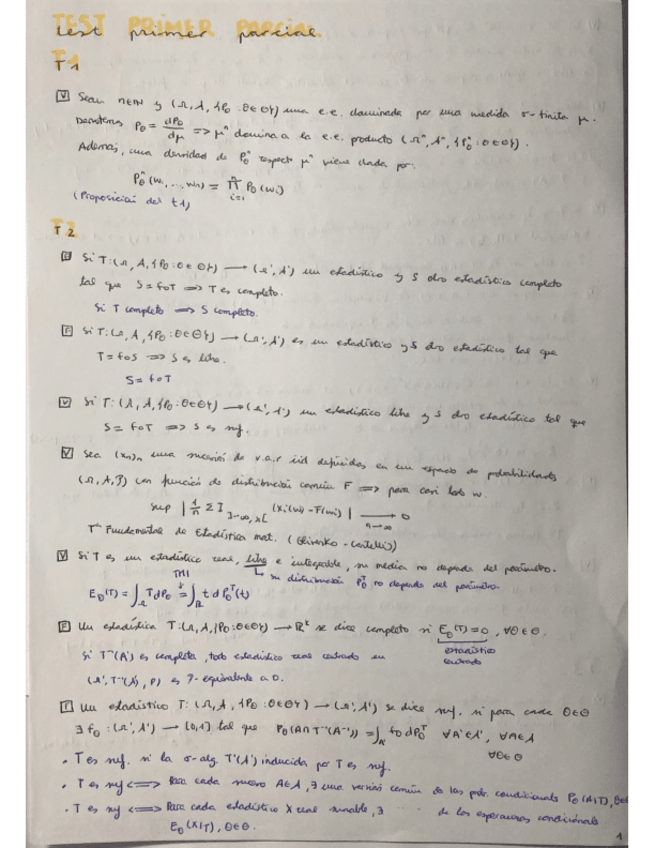 TEST PRIMER PARCIAL
test primer parcial
T1
V Sean n∈ℕ y (Ω, A, {Pθ : θ∈Θ}) una e.e. dominada por una medida σ-finita μ.
Denotemos Pθ = dPθ/dμ => μⁿ domina a la e.e. producto (Ωⁿ, Aⁿ, {Pθⁿ : θ∈Θ}).
Además, una densidad de Pθⁿ respecto μⁿ viene dada por:
Pθⁿ(w₁, ..., wn) = ∏ᵢ₌₁ⁿ Pθ(wᵢ)
(Proposición del t1)
T2
Si T: (Ω, A, {Pθ : θ∈Θ}) → (Ω', A') un estadístico y S otro estadístico completo
tal que S = f∘T => T es completo.
Si T completo => S completo.
F Si T: (Ω, A, {Pθ : θ∈Θ}) → (Ω', A') es un estadístico y S otro estadístico tal que
T = f∘S => S es libre.
S = f∘T
V Si T: (Ω, A, {Pθ : θ∈Θ}) → (Ω', A') un estadístico libre y S otro estadístico tal que
S = f∘T => S es suf.
V Sea (Xn)n una sucesión de v.a.r iid definidas en un espacio de probabilidades
(Ω, A, P) con función de distribución común F => para casi todo w.
sup | 1/n Σ I ]-∞, x[ (Xi(w)) - F(x) | → 0
n→∞
Tª Fundamental de Estadística mat. (Glivenko - Cantelli)
V Si T es un estadístico real, libre e integrable, su media no depende del parámetro.
su distribución PθT no depende del parámetro.
Eθ(T) = ∫Ω T dPθ = ∫ℝ t dPθT(t)
F Un estadístico T: (Ω, A, {Pθ : θ∈Θ}) → ℝᵏ se dice completo si Eθ(T) = 0, ∀θ∈Θ.
estadístico
centrado
Si T⁻¹(A') es completa, todo estadístico real centrado en
(Ω, T⁻¹(A'), P) es P-equivalente a 0.
F Un estadístico T: (Ω, A, {Pθ : θ∈Θ}) → (Ω', A') se dice suf. si para cada θ∈Θ
∃ fθ : (Ω', A') → [0,1] tal que Pθ(A∩T⁻¹(A')) = ∫A' fθ dPθT ∀A'∈A', ∀A∈A
∀θ∈Θ
• T es suf. si la σ-alg. T⁻¹(A') inducida por T es suf.
• T es suf <=> Para cada suceso A∈A, ∃ una versión común de las prob. condicionales Pθ(A|T), θ∈Θ
• T es suf <=> Para cada estadístico X real sumable, ∃ ..... de las esperanzas condicionales
Eθ(X|T), θ∈Θ.
1